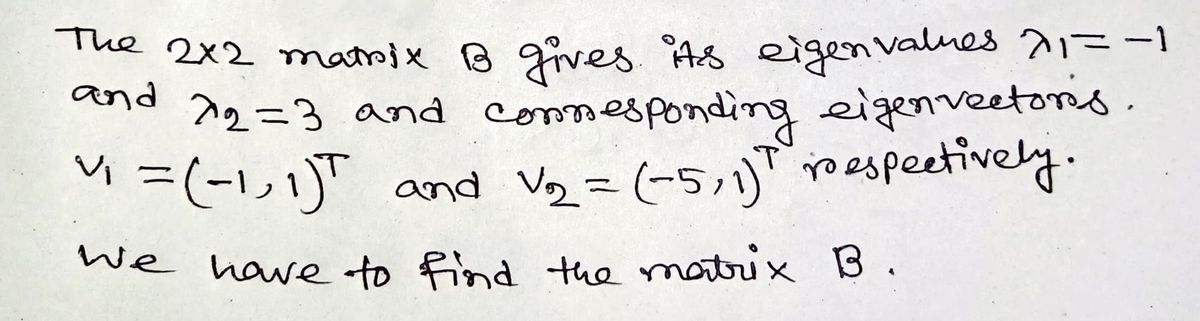 The 2x2 matrix B gives its eigenvalues λ1 = -1
and λ2 = 3 and corresponding eigenvectors.
V1 = (-1, 1)^T and V2 = (-5, 1)^T respectively.
We have to find the matrix B.